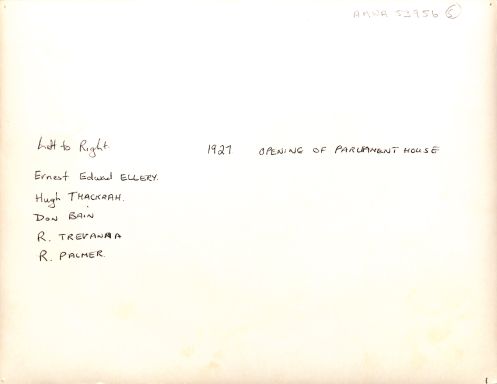 Left to Right
1927 OPENING OF PARLIAMENT HOUSE
Ernest Edward ELLERY.
Hugh THACKRAH.
DON BAIN
R. TREVANNA
R. PALMER.